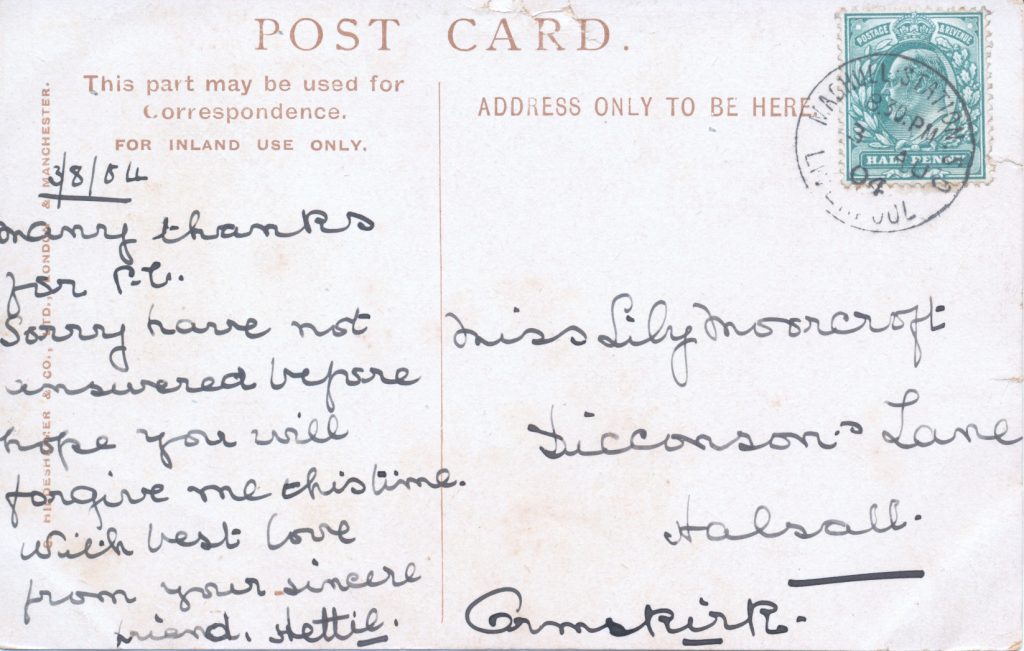 POST CARD.
This part may be used for
Correspondence.
FOR INLAND USE ONLY.
ADDRESS ONLY TO BE HERE
POSTAGE & REVENUE
HALF PENNY
MAGHULL STATION
8.30 PM
3 AUG
04
LIVERPOOL
HILDESHEIMER & CO., LTD., LONDON & MANCHESTER.
3/8/04
Many thanks
for P.C.
Sorry have not
answered before
hope you will
forgive me this time.
With best love
from your sincere
friend, Hettie.
Miss Lily Moorcroft
Dicconson's Lane
Halsall.
Ormskirk.